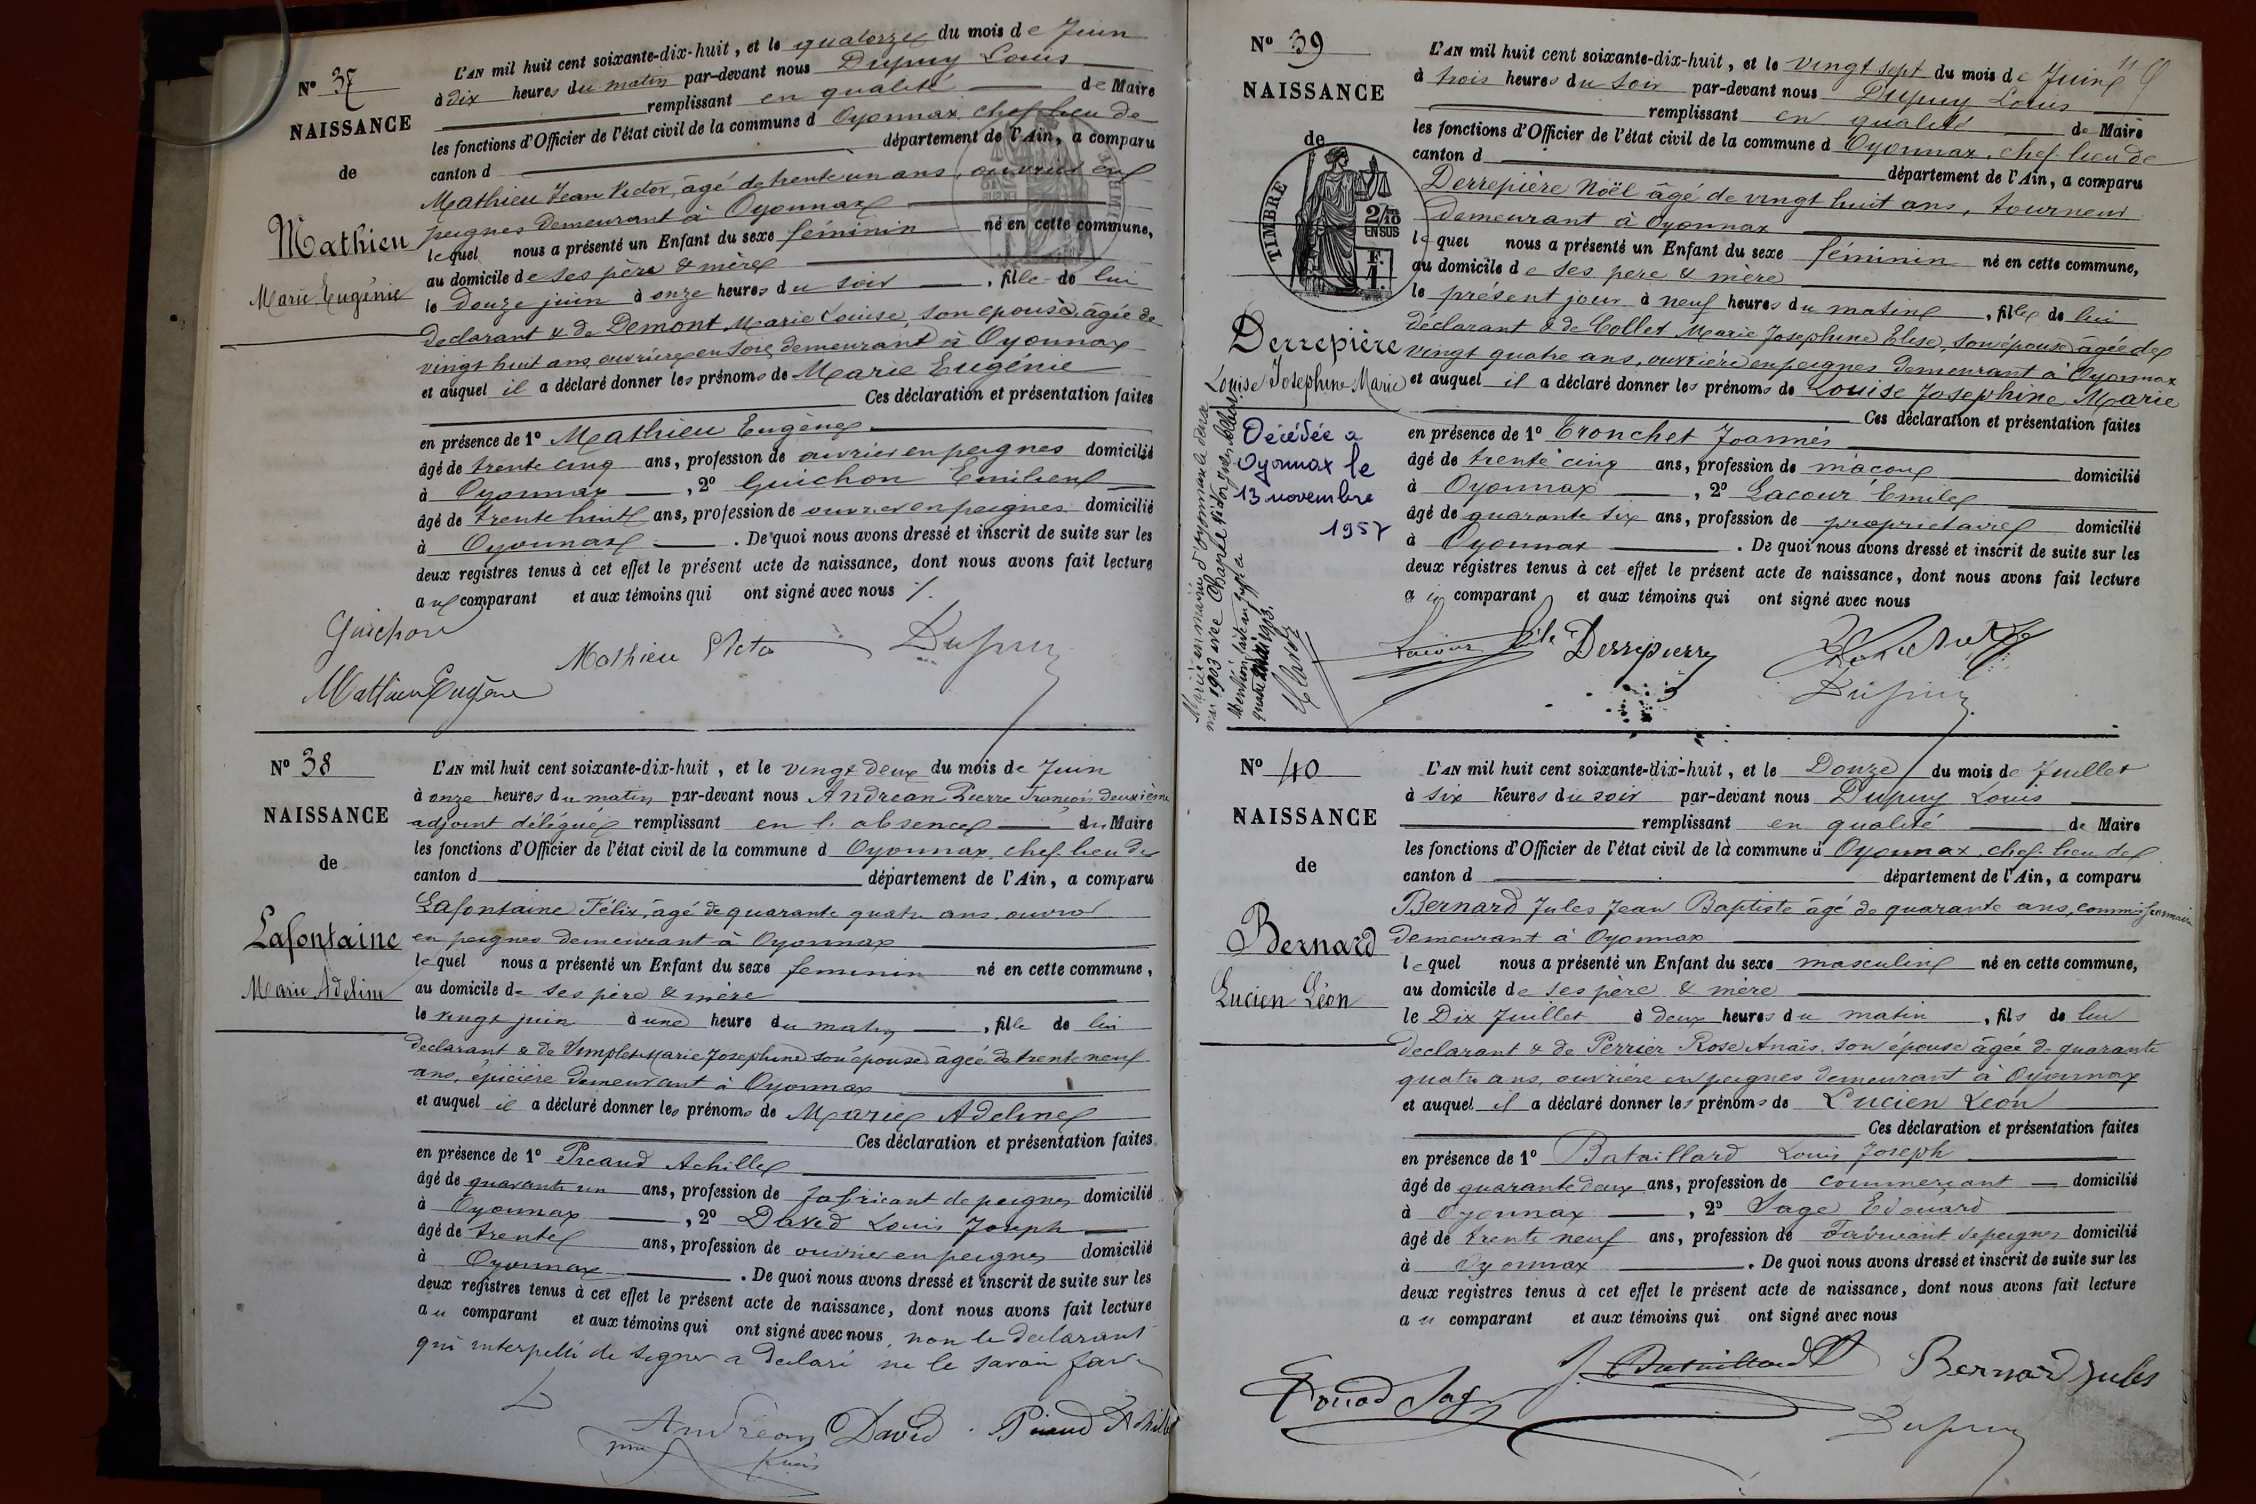 N° 37
NAISSANCE
de
Mathieu
Marie Eugénie
L'AN mil huit cent soixante-dix-huit, et le quatorze du mois de Juin
à dix heures du matin par-devant nous Dupuy Louis
remplissant en qualité de Maire
les fonctions d'Officier de l'état civil de la commune d Oyonnax, chef lieu de
canton d département de l'Ain, a comparu
Mathieu Jean Victor, âgé de trente un ans, ouvrier en
peignes demeurant à Oyonnax
lequel nous a présenté un Enfant du sexe féminin né en cette commune,
au domicile de ses père & mère
le douze juin à onze heures du soir, fille de lui
déclarant & de Demont Marie Louise, son épouse, âgée de
vingt huit ans, ouvrière en soie, demeurant à Oyonnax
et auquel il a déclaré donner les prénoms de Marie Eugénie
Ces déclaration et présentation faites
en présence de 1° Mathieu Eugène
âgé de trente cinq ans, profession de ouvrier en peignes domicilié
à Oyonnax, 2° Guichon Emilien
âgé de trente huit ans, profession de ouvrier en peignes domicilié
à Oyonnax. De quoi nous avons dressé et inscrit de suite sur les
deux registres tenus à cet effet le présent acte de naissance, dont nous avons fait lecture
au comparant et aux témoins qui ont signé avec nous
Guichon
Mathieu Victor Dupuy
Mathieu Eugène
N° 38
NAISSANCE
de
Lafontaine
Marie Adeline
L'AN mil huit cent soixante-dix-huit, et le vingt deux du mois de Juin
à onze heures du matin par-devant nous Andréan Pierre François deuxième
adjoint délégué remplissant en l'absence du Maire
les fonctions d'Officier de l'état civil de la commune d Oyonnax, chef lieu de
canton d département de l'Ain, a comparu
Lafontaine Félix, âgé de quarante quatre ans, ouvrier
en peignes demeurant à Oyonnax
lequel nous a présenté un Enfant du sexe feminin né en cette commune,
au domicile de ses père & mère
le vingt juin à une heure du matin, fille de lui
déclarant & de Marie Josephine son épouse âgée de trente neuf
ans, épicière demeurant à Oyonnax
et auquel il a déclaré donner les prénoms de Marie Adeline
Ces déclaration et présentation faites
en présence de 1° Picaud Achille
âgé de quarante un ans, profession de fabricant de peignes domicilié
à Oyonnax, 2° David Louis Joseph
âgé de trente ans, profession de ouvrier en peignes domicilié
à Oyonnax. De quoi nous avons dressé et inscrit de suite sur les
deux registres tenus à cet effet le présent acte de naissance, dont nous avons fait lecture
au comparant et aux témoins qui ont signé avec nous, non le déclarant
qui interpellé de signer a déclaré ne le savoir faire
Andréan David Picaud Achille
N° 39
NAISSANCE
de
TIMBRE
2/10 EN SUS
F. 1.
Derrepière
Louise Josephine Marie
Décédée a
Oyonnax le
13 novembre
1957
L'AN mil huit cent soixante-dix-huit, et le vingt sept du mois de Juin
à trois heures du soir par-devant nous Dupuy Louis
remplissant en qualité de Maire
les fonctions d'Officier de l'état civil de la commune d Oyonnax, chef lieu de
canton d département de l'Ain, a comparu
Derrepière Noël âgé de vingt huit ans, tourneur
demeurant à Oyonnax
lequel nous a présenté un Enfant du sexe féminin né en cette commune,
au domicile de ses père & mère
le présent jour à neuf heures du matin, fille de lui
déclarant & de Collet Marie Josephine Elise, son épouse âgée de
vingt quatre ans, ouvrière en peignes demeurant à Oyonnax
et auquel il a déclaré donner les prénoms de Louise Josephine Marie
Ces déclaration et présentation faites
en présence de 1° Tronchet Joannès
âgé de trente cinq ans, profession de maçon domicilié
à Oyonnax, 2° Lacour Emile
âgé de quarante six ans, profession de propriétaire domicilié
à Oyonnax. De quoi nous avons dressé et inscrit de suite sur les
deux registres tenus à cet effet le présent acte de naissance, dont nous avons fait lecture
au comparant et aux témoins qui ont signé avec nous
Derrepierre
Dupuy
N° 40
NAISSANCE
de
Bernard
Lucien Léon
L'AN mil huit cent soixante-dix-huit, et le Douze du mois de Juillet
à six heures du soir par-devant nous Dupuy Louis
remplissant en qualité de Maire
les fonctions d'Officier de l'état civil de la commune d Oyonnax, chef lieu de
canton d département de l'Ain, a comparu
Bernard Jules Jean Baptiste âgé de quarante ans, commissionnaire
demeurant à Oyonnax
lequel nous a présenté un Enfant du sexe masculin né en cette commune,
au domicile de ses père & mère
le Dix Juillet à deux heures du matin, fils de lui
déclarant & de Perrier Rose Anaïs, son épouse âgée de quarante
quatre ans, ouvrière en peignes demeurant à Oyonnax
et auquel il a déclaré donner les prénoms de Lucien Léon
Ces déclaration et présentation faites
en présence de 1° Bataillard Louis Joseph
âgé de quarante deux ans, profession de commerçant domicilié
à Oyonnax, 2° Sage Edouard
âgé de trente neuf ans, profession de Fabricant de peignes domicilié
à Oyonnax. De quoi nous avons dressé et inscrit de suite sur les
deux registres tenus à cet effet le présent acte de naissance, dont nous avons fait lecture
au comparant et aux témoins qui ont signé avec nous
Edouard Sage J. Bataillard Bernard Jules
Dupuy